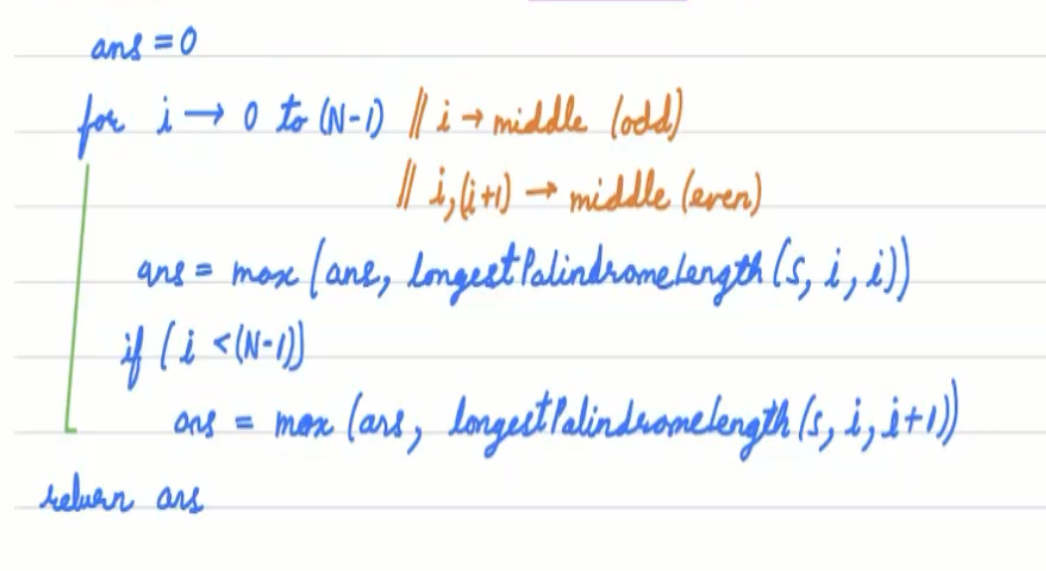 ans = 0
for i → 0 to (N-1) // i → middle (odd)
// i, (i+1) → middle (even)
ans = max (ans, longestPalindromeLength (s, i, i))
if (i < (N-1))
ans = max (ans, longestPalindromeLength (s, i, i+1))
return ans